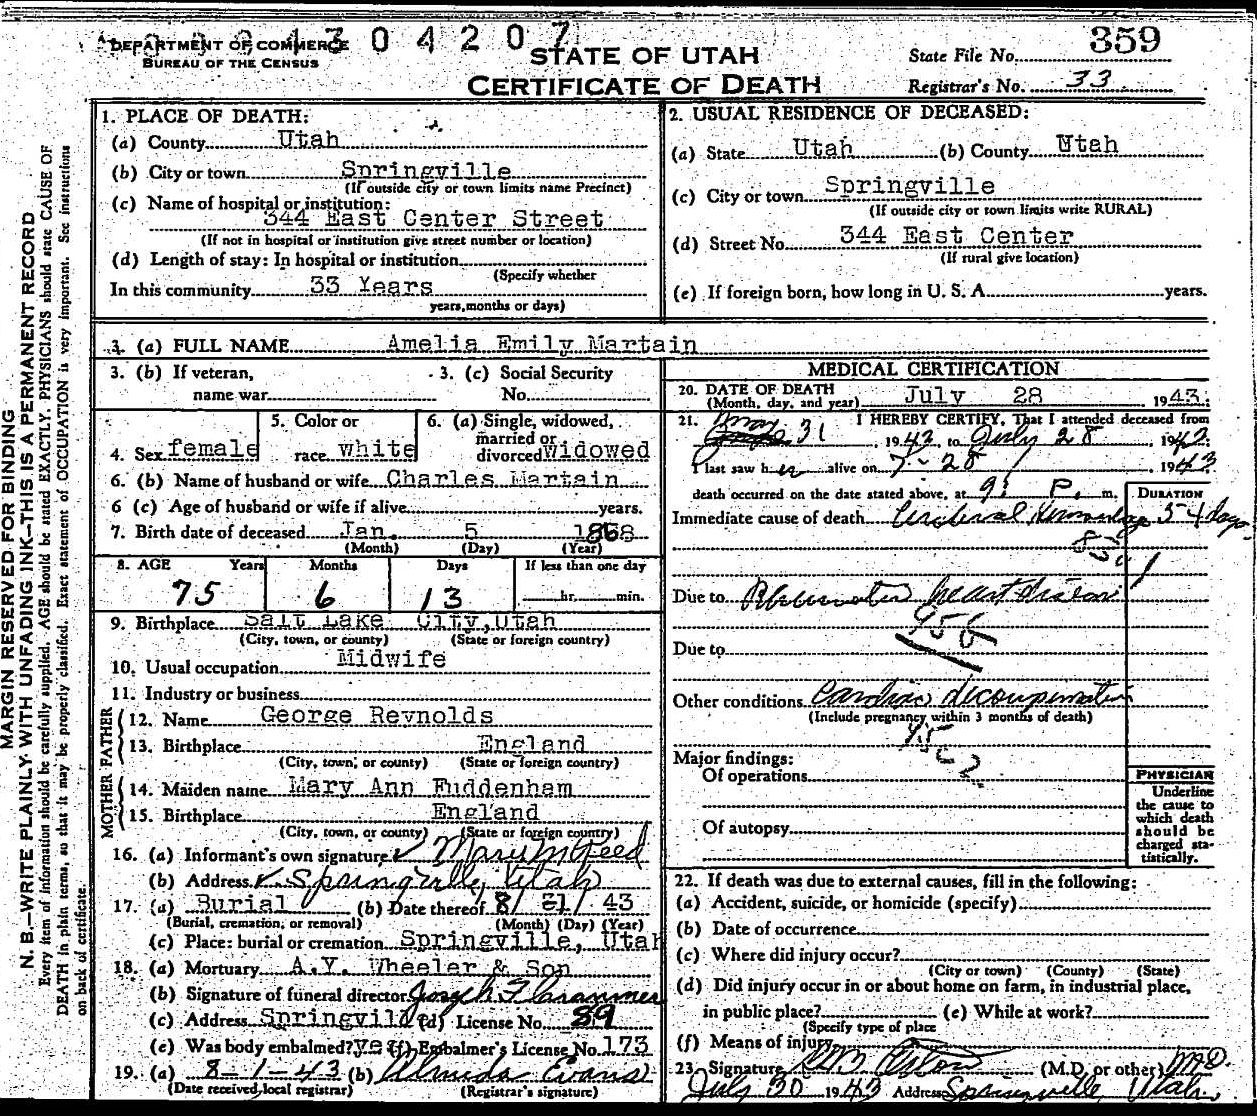 DEPARTMENT OF COMMERCE
BUREAU OF THE CENSUS
4304207
STATE OF UTAH
CERTIFICATE OF DEATH
State File No. 359
Registrar's No. 33
MARGIN RESERVED FOR BINDING
N. B.—WRITE PLAINLY WITH UNFADING INK—THIS IS A PERMANENT RECORD
Every item of information should be carefully supplied. AGE should be stated EXACTLY. PHYSICIANS should state CAUSE OF
DEATH in plain terms, so that it may be properly classified. Exact statement of OCCUPATION is very important. See instructions
on back of certificate.
1. PLACE OF DEATH:
(a) County Utah
(b) City or town Springville
(If outside city or town limits name Precinct)
(c) Name of hospital or institution:
344 East Center Street
(If not in hospital or institution give street number or location)
(d) Length of stay: In hospital or institution
(Specify whether
In this community 33 Years
years, months or days)
2. USUAL RESIDENCE OF DECEASED:
(a) State Utah (b) County Utah
(c) City or town Springville
(If outside city or town limits write RURAL)
(d) Street No. 344 East Center
(If rural give location)
(e) If foreign born, how long in U. S. A. years.
3. (a) FULL NAME Amelia Emily Martain
3. (b) If veteran,
name war
3. (c) Social Security
No.
4. Sex female
5. Color or
race white
6. (a) Single, widowed,
married or
divorced widowed
6. (b) Name of husband or wife Charles Martain
6 (c) Age of husband or wife if alive years.
7. Birth date of deceased Jan. 5 1868
(Month) (Day) (Year)
8. AGE Years Months Days If less than one day
75 6 13 hr. min.
9. Birthplace Salt Lake City, Utah
(City, town, or county) (State or foreign country)
10. Usual occupation Midwife
11. Industry or business
FATHER
12. Name George Reynolds
13. Birthplace England
(City, town, or county) (State or foreign country)
MOTHER
14. Maiden name Mary Ann Fuddenham
15. Birthplace England
(City, town, or county) (State or foreign country)
16. (a) Informant's own signature Mary M Reed
(b) Address Springville, Utah
17. (a) Burial (b) Date thereof 8/ 31/ 43
(Burial, cremation, or removal) (Month) (Day) (Year)
(c) Place: burial or cremation Springville, Utah
18. (a) Mortuary A.Y. Wheeler & Son
(b) Signature of funeral director Joseph
(c) Address Springville (d) License No. 89
(e) Was body embalmed? yes (f) Embalmer's License No. 173
19. (a) 8-1-43 (b) Almida Evans
(Date received local registrar) (Registrar's signature)
MEDICAL CERTIFICATION
20. DATE OF DEATH
(Month, day, and year) July 28 1943.
21. I HEREBY CERTIFY, That I attended deceased from
May 31, 1943, to July 28 1943.
I last saw her alive on 7-28 1943
death occurred on the date stated above, at 9: P. m.
DURATION
Immediate cause of death Cerebral Hemorrhage 54 days
83a
Due to Rheumatic heart disease
956
Due to
Other conditions Cardiac decompensation
(Include pregnancy within 3 months of death)
Major findings:
Of operations
Of autopsy
PHYSICIAN
Underline
the cause to
which death
should be
charged sta-
tistically.
22. If death was due to external causes, fill in the following:
(a) Accident, suicide, or homicide (specify)
(b) Date of occurrence
(c) Where did injury occur?
(City or town) (County) (State)
(d) Did injury occur in or about home on farm, in industrial place,
in public place? (e) While at work?
(Specify type of place
(f) Means of injury
23. Signature (M.D. or other) M.D.
July 30 1943 Address Springville, Utah